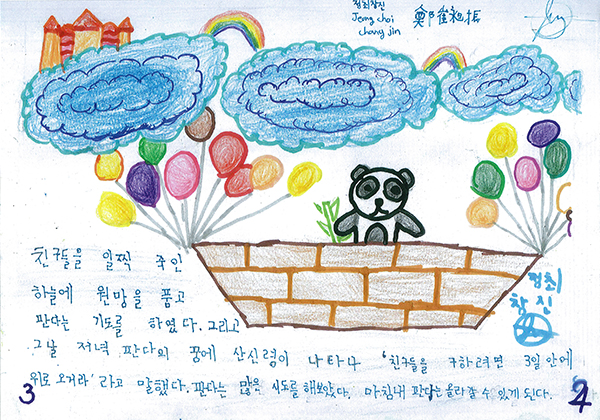 정최창진
Jeong choi
chang jin
鄭崔昶振
친구들을 일찍 죽인
하늘에 원망을 품고
판다는 기도를 하였다. 그리고
그날 저녁 판다의 꿈에 산신령이 나타나 '친구들을 구하려면 3일 안에
위로 오거라' 라고 말했다. 판다는 많은 시도를 해보았다. 마침내 판다는 올라갈 수 있게 된다.
정최
창진
3
4